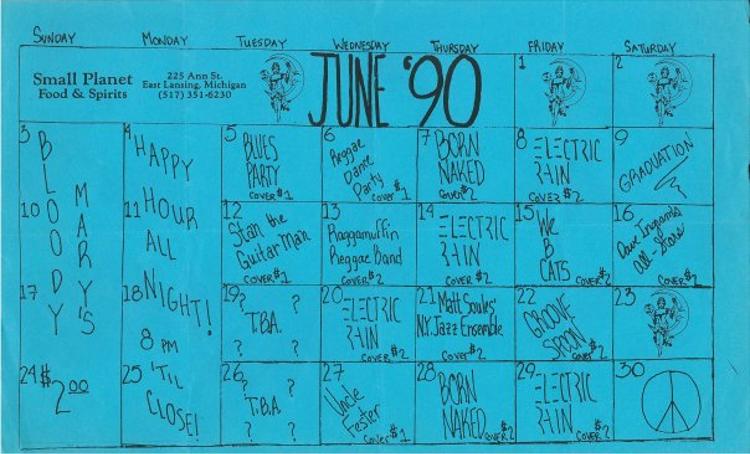 SUNDAY MONDAY TUESDAY WEDNESDAY THURSDAY FRIDAY SATURDAY
Small Planet
Food & Spirits
225 Ann St.
East Lansing, Michigan
(517) 351-6230
JUNE '90
1
2
3
BLOODY
MARY'S
4
HAPPY
5
BLUES
PARTY
COVER $1
6
Reggae
Dance
Party
COVER $1
7
BORN
NAKED
COVER $2
8
ELECTRIC
RAIN
COVER $2
9
GRADUATION
10
11
HOUR
ALL
12
Stan the
Guitar Man
COVER $1
13
Raggamuffin
Reggae Band
COVER $2
14
ELECTRIC
RAIN
COVER $2
15
We
B
CATS
COVER $2
16
Dave Ingram's
All-Stars
COVER $2
17
18
NIGHT!
8 PM
19
? ?
T.B.A.
? ?
20
ELECTRIC
RAIN
COVER $2
21
Matt Soules'
N.Y. Jazz Ensemble
COVER $2
22
GROOVE
SPOON
COVER $2
23
24
$2.00
25
'TIL
CLOSE!
26
? ?
T.B.A.
? ?
27
Uncle
Fester
COVER $1
28
BORN
NAKED
COVER $2
29
ELECTRIC
RAIN
COVER $2
30